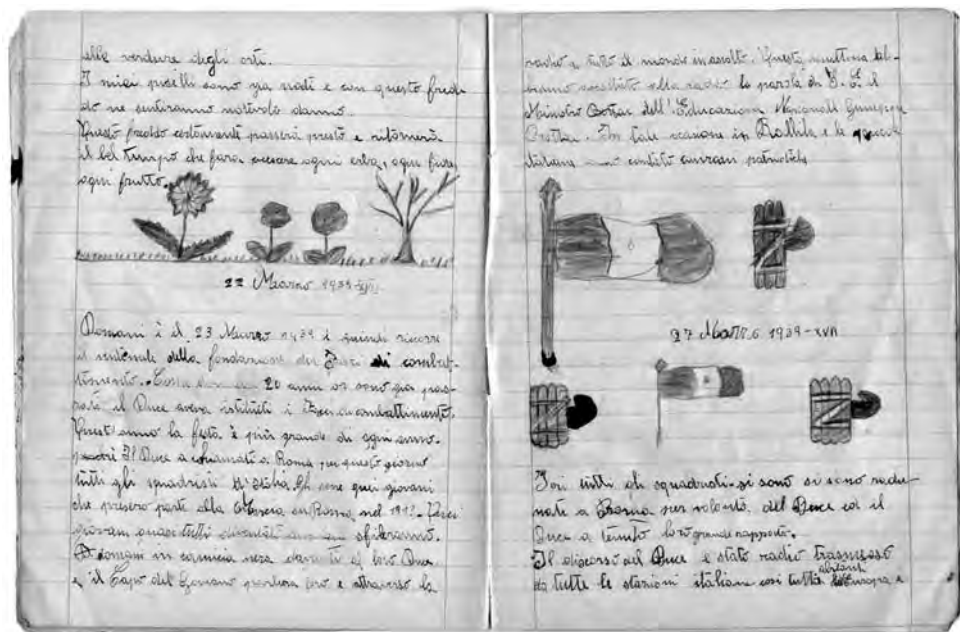 alle verdure degli orti.
I miei piselli sono già nati e con questo fred-
do ne sentiranno notevole danno.
Questo freddo certamente passerà presto e ritornerà
il bel tempo che farà crescere ogni erba, ogni fiore,
ogni frutto.
22 Marzo 1939-XVII
Domani è il 23 Marzo 1939 e quindi ricorre
il ventennale della fondazione dei Fasci di combat-
timento. 20 anni or sono già pas-
sati il Duce aveva istituiti i Fasci di combattimento.
Quest'anno la festa è più grande di ogni anno.
Il Duce a chiamati a Roma per questo giorno
tutti gli squadristi d'Italia. Gli quei giovani
che presero parte alla Marcia su Roma nel
giovani quasi tutti diventati sfileranno.
domani in camicia nera davanti al loro Duce
e il Capo del Governo parlerà loro e attraverso la
radio a tutto il mondo in ascolto. Questa mattina ab-
biamo ascoltato alla radio la parola di S. E. il
Ministro dell'Educazione Nazionale Giuseppe
Bottai. In tale occasione i Balilla e le piccole
italiane cantato canzoni patriottiche
27 Marzo 1939-XVII
Ieri tutti gli squadristi si sono si sono radu-
nati a Roma per volontà del Duce ed il
Duce a tenuto loro grande rapporto.
Il discorso del Duce è stato radio trasmesso
da tutte le stazioni italiane così tutta Europa e